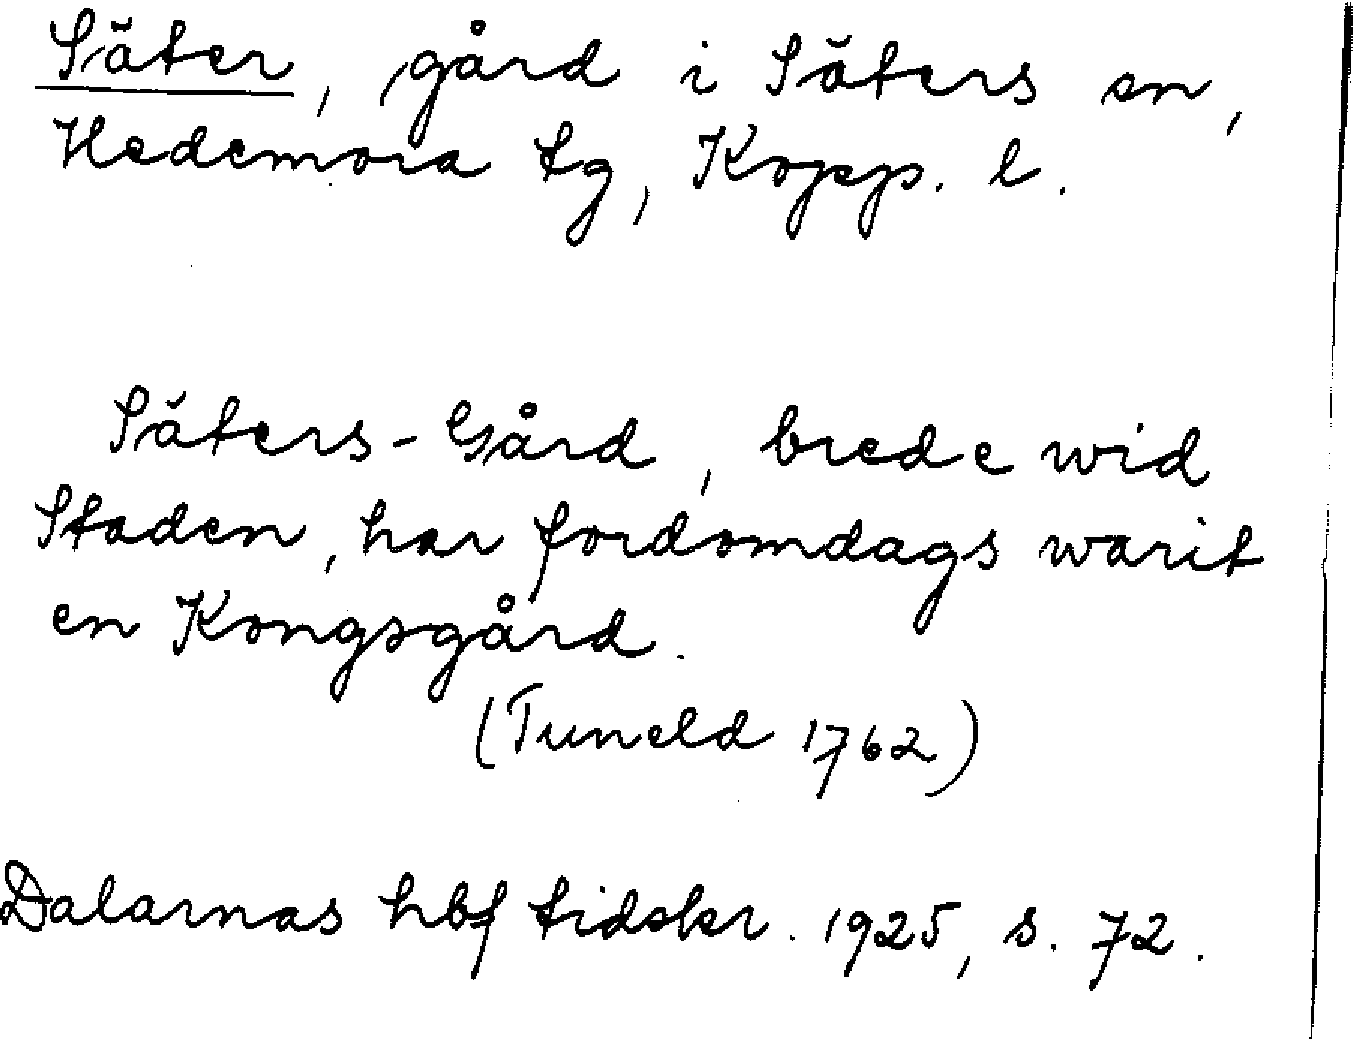 Säter, gård i Säters sn,
Hedemora tg, Kopp. l.
Säters-Gård, brede wid
Staden, har fordomdags warit
en Kongsgård.
(Tuneld 1762)
Dalarnas hbf tidskr. 1925, s. 72.